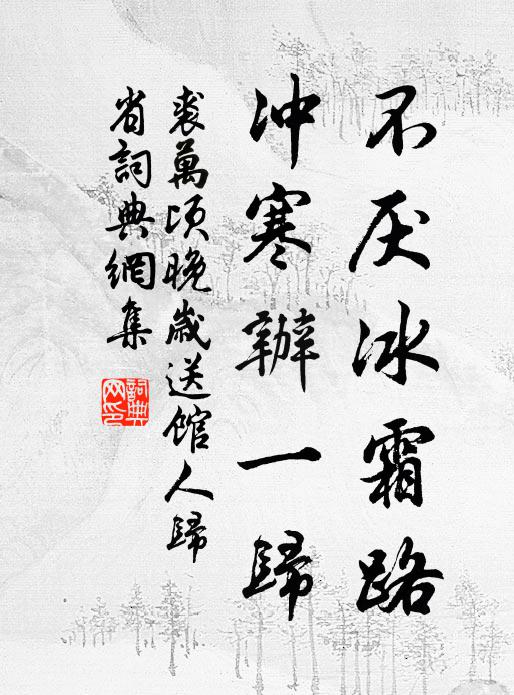 不厌冰霜路
冲寒辦一歸
裘萬頃晚歲送館人歸
省詞典網集
詞典
网印